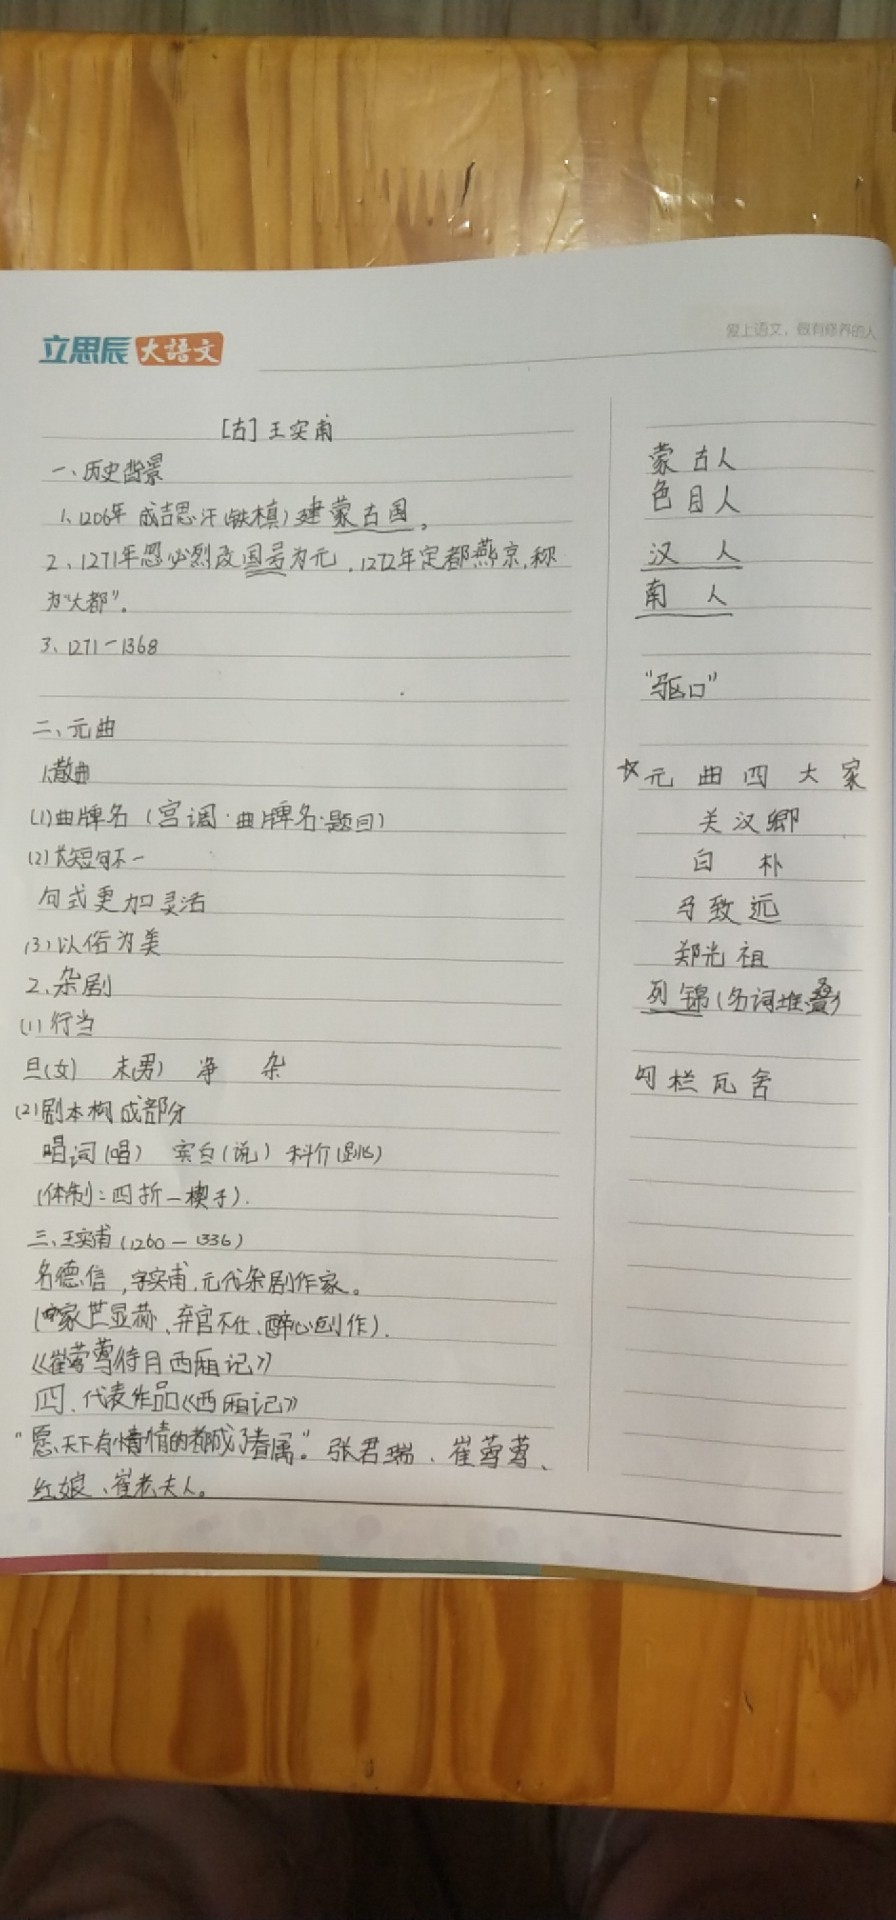 立思辰大語文
爱上语文，做有修养的人
[古]王实甫
一、历史背景
1、1206年 成吉思汗(铁木真)建蒙古国。
2、1271年忽必烈改国号为元，1272年定都燕京，称
为"大都"。
3、1271-1368
二、元曲
1、散曲
(1)曲牌名（宫调·曲牌名·题目）
(2)长短句不一
句式更加灵活
(3)以俗为美
2、杂剧
(1)行当
旦(女) 末(男) 净 杂
(2)剧本构成部分
唱词(唱) 宾白(说) 科介(跳)
(体制:四折一楔子).
三、王实甫(1260-1336)
名德信,字实甫,元代杂剧作家。
家世显赫、弃官不仕、醉心创作).
《崔莺莺待月西厢记》
四、代表作品《西厢记》
"愿天下有情的都成了眷属。"张君瑞、崔莺莺、
红娘、崔老夫人。
蒙古人
色目人
汉人
南人
"驱口"
☆元曲四大家
关汉卿
白朴
马致远
郑光祖
列锦(名词堆叠)
勾栏瓦舍